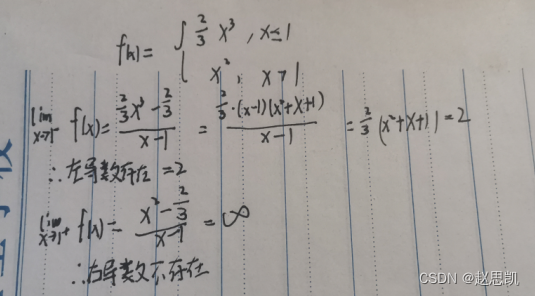 f(x) = { 2/3 x³ , x≤1
x² , x>1
lim x→1⁻ f(x) = (2/3 x³ - 2/3)/(x-1) = 2/3·(x-1)(x²+x+1)/(x-1) = 2/3 (x²+x+1) = 2
∴左导数存在=2
lim x→1⁺ f(x) = (x² - 2/3)/(x-1) = ∞
∴右导数不存在
CSDN @赵思凯